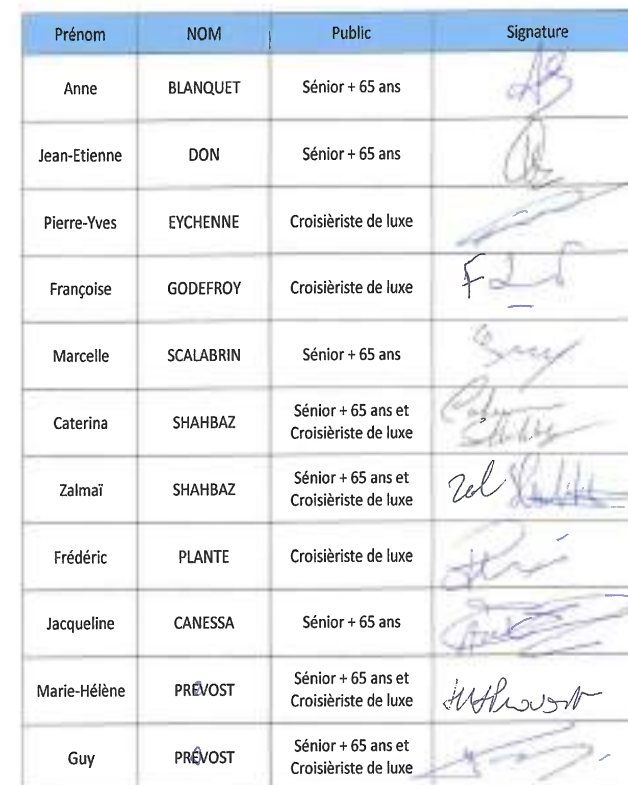 Prénom NOM Public Signature
Anne BLANQUET Sénior + 65 ans
Jean-Etienne DON Sénior + 65 ans
Pierre-Yves EYCHENNE Croisièriste de luxe
Françoise GODEFROY Croisièriste de luxe F
Marcelle SCALABRIN Sénior + 65 ans
Caterina SHAHBAZ Sénior + 65 ans et
Croisièriste de luxe
Zalmaï SHAHBAZ Sénior + 65 ans et
Croisièriste de luxe Zal
Frédéric PLANTE Croisièriste de luxe
Jacqueline CANESSA Sénior + 65 ans
Marie-Hélène PRÉVOST Sénior + 65 ans et
Croisièriste de luxe MHPrevost
Guy PRÉVOST Sénior + 65 ans et
Croisièriste de luxe